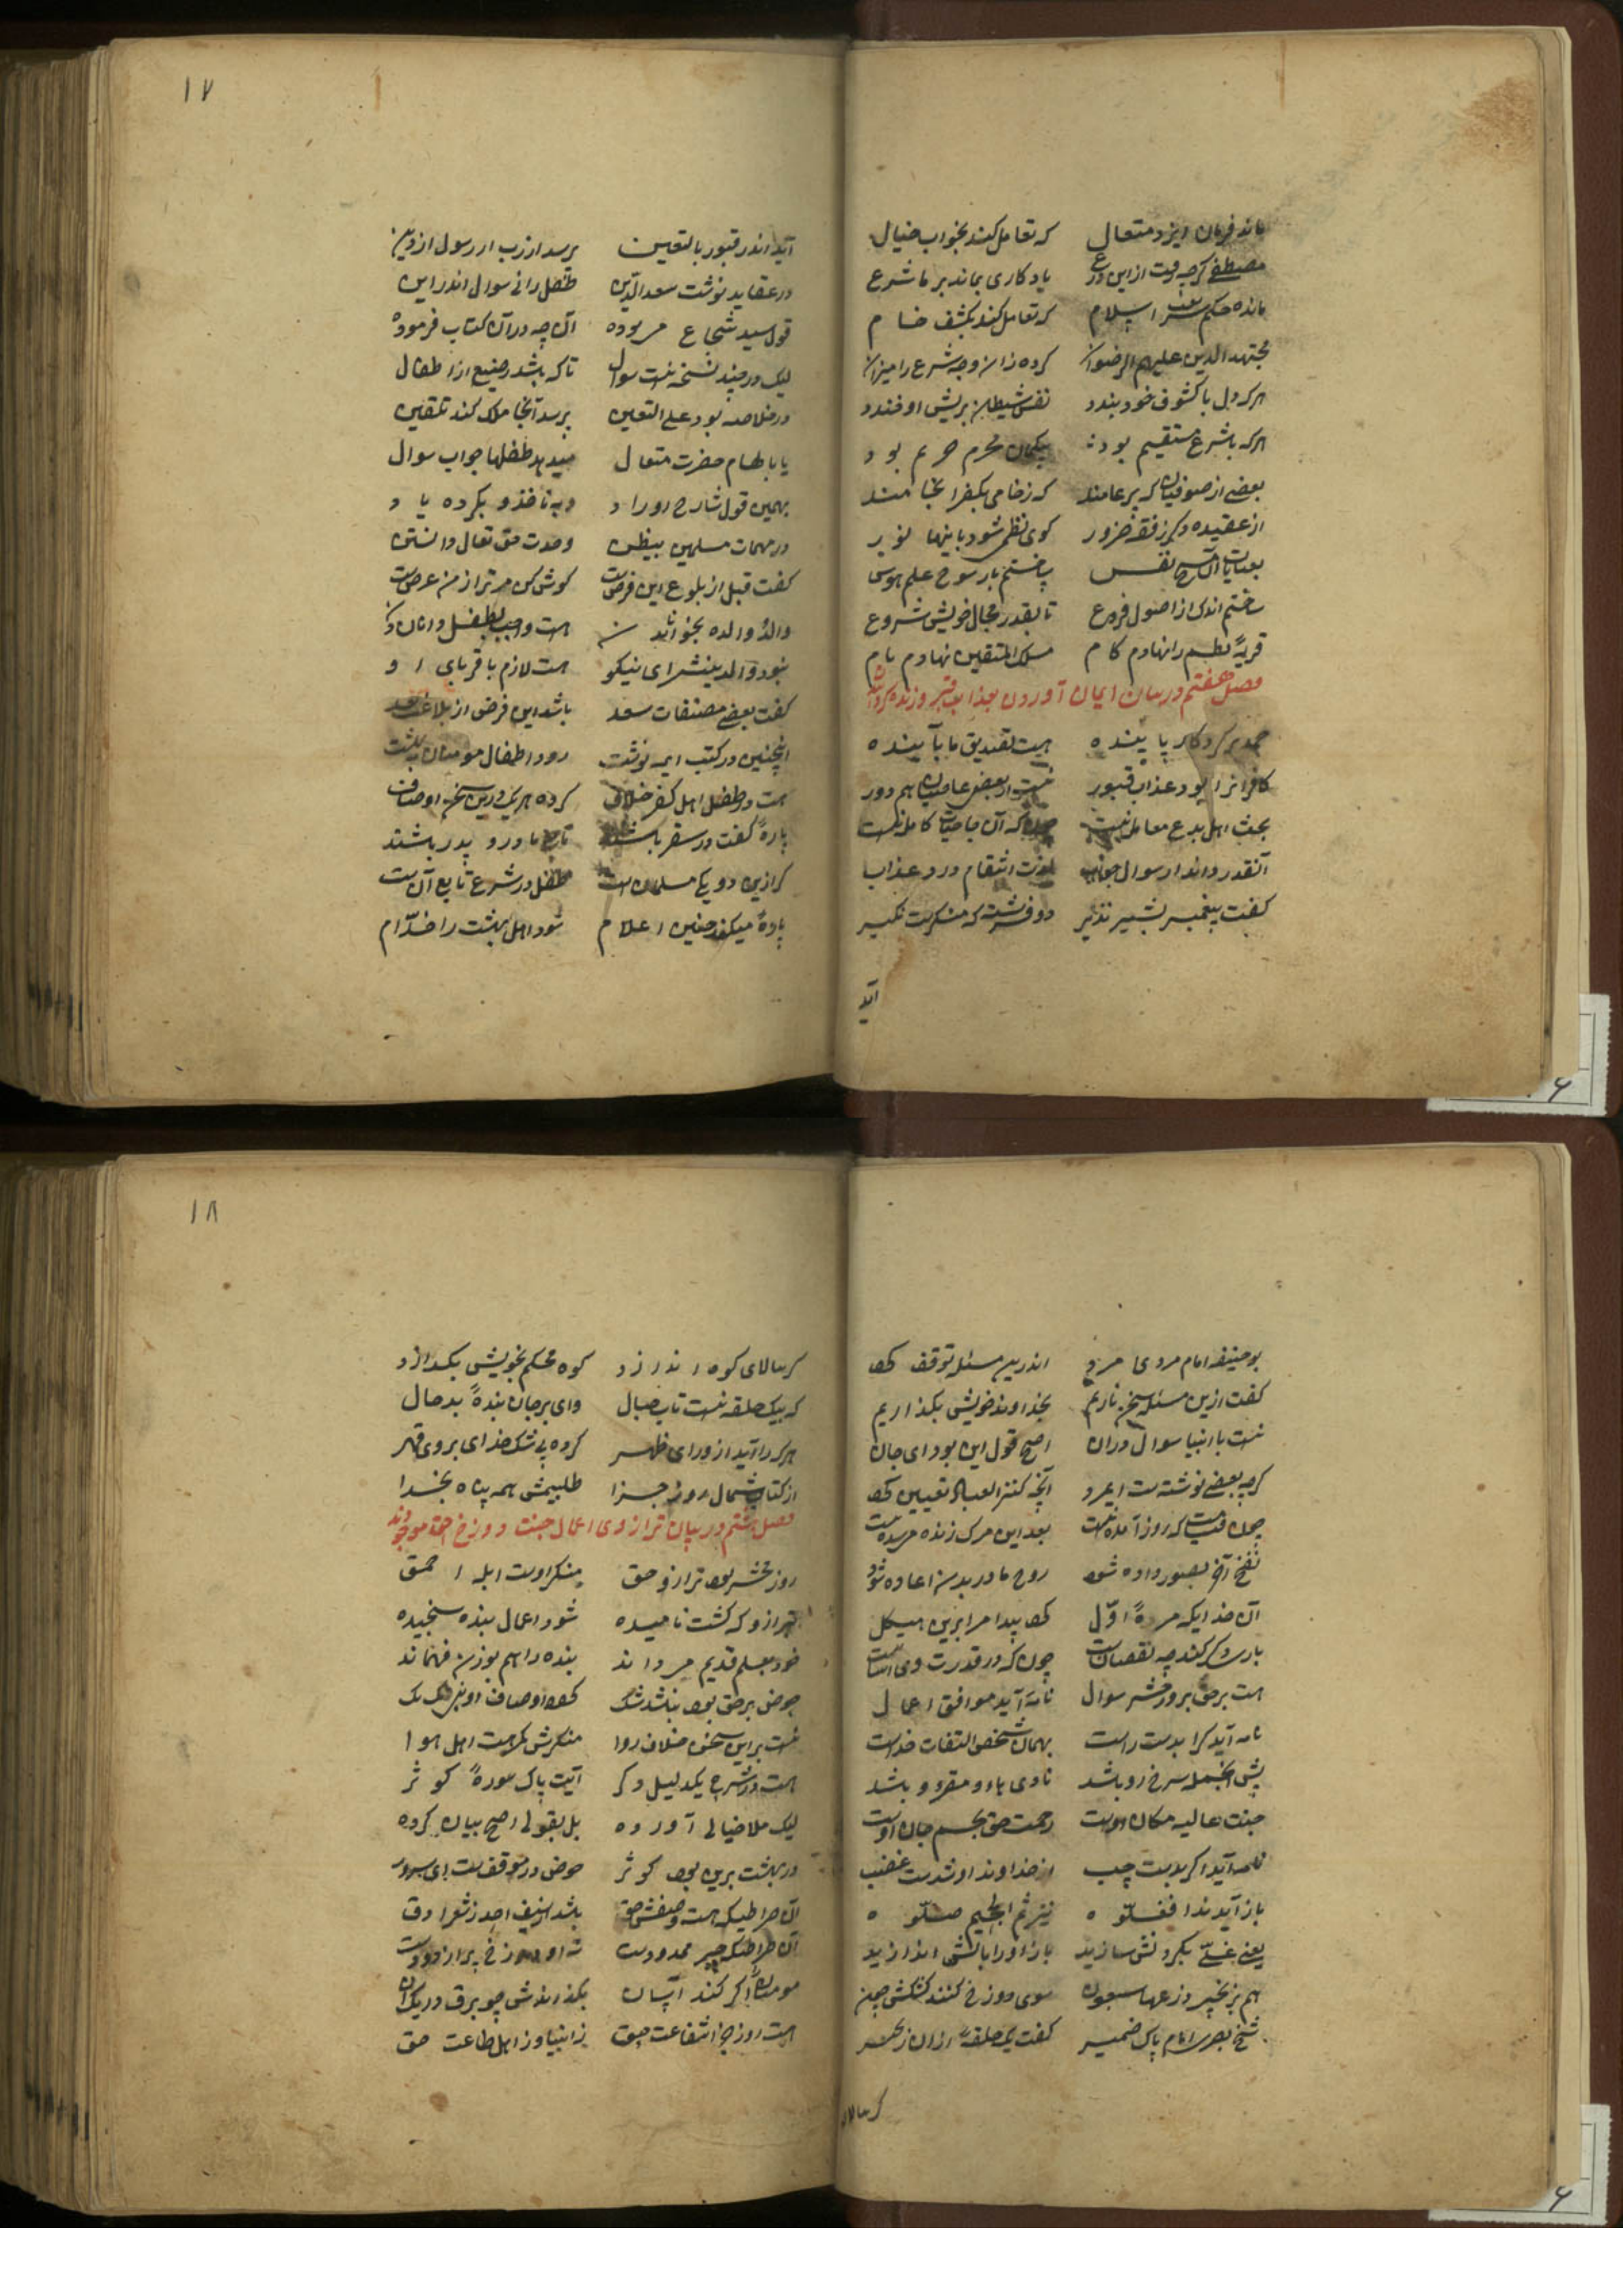 ماند فرمان ایزد متعال که تعامل کنند بخواب خیال
مصطفی کرچه رفت از این یادکاری بماند بر ما شرع
مانده حکم اسلام که تعامل کند بکشف خام
مجتهد الدین علیهم الرضوان کرده زانرو چه شرع را میزان
هر که دل با کشوف خود بندد نفس شیطان بریش او خندد
هر که با شرع مستقیم بود بیکمان محرم حریم بود
بعضی از صوفیان که پر عامند که ز خامی بکفر انجامند
از عقیده دکر ز فقه ضرور کوی نظمی شود باینها نور
ساختم با رسوخ علم هوس
ساختم اندک از اصول فروع تا بقدر مجال خویش شروع
قریهٔ نظم را نهادم کام مسلک المتقین نهادم نام
فصل هفتم در بیان ایمان آوردن بعذاب قبر و زنده کردن
حمد بر کردکار پاینده هست تصدیق ما بآینده
کافرانرا بود عذاب قبور نیست از بعض عاصیان هم دور
بحث اهل بدع معامل نیست که آن حیات کامل نیست
آنقدر داند از سوال جواب لذت انتقام درد عذاب
کفت پیغمبر بشیر نذیر دو فرشته که منکرست نکیر
آید
۱۷
آید اندر قبور بالتعین پرسد از رب از رسول از دین
در عقاید نوشت سعد الدین طفل رانی سوال اندر این
قول سید شجاع مر بوده آن چه در آن کتاب فرموده
لیک در چند نسخه نیست سوال تا که باشد رضیع از اطفال
در خلاصه بود علی التعین پرسد آنجا ملک کند تلقین
یا بالهام حضرت متعال میدهد طفلها جواب سوال
بهمین قول شارح اوراد وبه نافذ و بکرده یاد
در مهمات مسلمین ببظن وحدت حق تعالی دانستن
کفت قبل از بلوغ این فرض است کوش کن مر ترا ز من عرض است
والد و والده بجنوانیدن هست واجب بطفل دانان
نبود والدینش ای نیکو هست لازم باقربای او
کفت بعضی مصنفات سعد باشد این فرض از بلاغت بعد
اینچنین در کتب ایمه نوشت رود اطفال مومنان به بهشت
هست در طفل اهل کفر خلاف کرده هر یک درین سخن اوصاف
پارهٔ کفت در سقر باشند تابع مادر و پدر باشند
کر ازین دو یکی مسلمان است طفل در شرع تابع آن است
پارهٔ میکند چنین اعلام شود اهل بهشت را خدام
بو حنیفه امام مردی مرد اندرین مسئله توقف کرد
کفت ازین مسئله سخن ناریم بخداوند خویش بکذاریم
نیست با انبیا سوال در ان اصح قول این بود ای جان
کرچه بعضی نوشته ست ایمرد آنچه کنز العباد تعیین کرد
چون قیامت که روز آمدنیست بعد این مرک زنده مردنیست
نفخ آخر بصور داده شود روح ها در بدن اعاده شود
آن خدائیکه مرهٔ اوّل کرد پیدا مرا برین هیکل
بار دیکر کند چه نقصان است چون که در قدرت وی آسان است
هست بر حق بروز حشر سوال نامه آید موافق اعمال
نامه آید کرا بدست راست بهمان شخص التفات خداست
پیش جمله سرخ رو باشد نادی هاؤم اقرؤ باشد
جنت عالیه مکان اوست رحمت حق بجسم جان اوست
نامه آید اکر بدست چپ از خداوند او شدست غضب
باز آید ندا فغلّوه نیز ثم الجحیم صلّوه
یعنی غلّی بکردنش سازید باز او را بآتش اندازید
هم بزنجیر ذرعها سبعون سوی دوزخ کنند کشکش چون
شیخ بصری امام پاک ضمیر کفت یک حلقهٔ از ان زنجیر
کر ببالای
۱۸
کر ببالای کوه اندازد کوه محکم بخویش بکدازد
که بیک حلقه نیست تاب جبال وای بر جان بندهٔ بدحال
هر کرا آید از ورای ظهر کرده بی شک خدای بر وی قهر
از کتاب شمال روز جزا طلبیمش همه پناه بخدا
فصل هشتم در بیان ترازوی اعمال جنت و دوزخ حق موجودند
روز محشر بود ترازو حق منکر اوست ابله احمق
ترازو که کشت نامیده شود اعمال بنده سنجیده
خود بعلم قدیم مر داند بنده را هم بوزن فهماند
حوض بر حق بود نباشد شک کرد اوصاف او نبی یک یک
نیست بر این سخن خلاف روا منکرش کمرهست اهل هوا
هست در شرع یک دلیل دکر آیت پاک سورهٔ کوثر
لیک ملا خیالی آورده بل بقولی اصح بیان کرده
در بهشت برین بود کوثر حوض در موقف است ای سرور
آن صراطیکه هست وصفش حق باشد از سیف احد ز شعر ادق
آن صراطیکه جسر ممدودست
مومنان را اکر کنند آسان بکذرانندش چو برق در یک آن
هست روز جزا شفاعت حق ز انبیا وز اهل طاعت حق